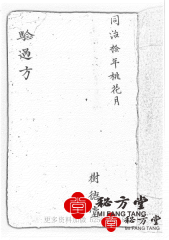 同治拾年桃花月
驗過方
樹德堂
秘方堂
MI FANG TANG
秘方堂
MI FANG TANG